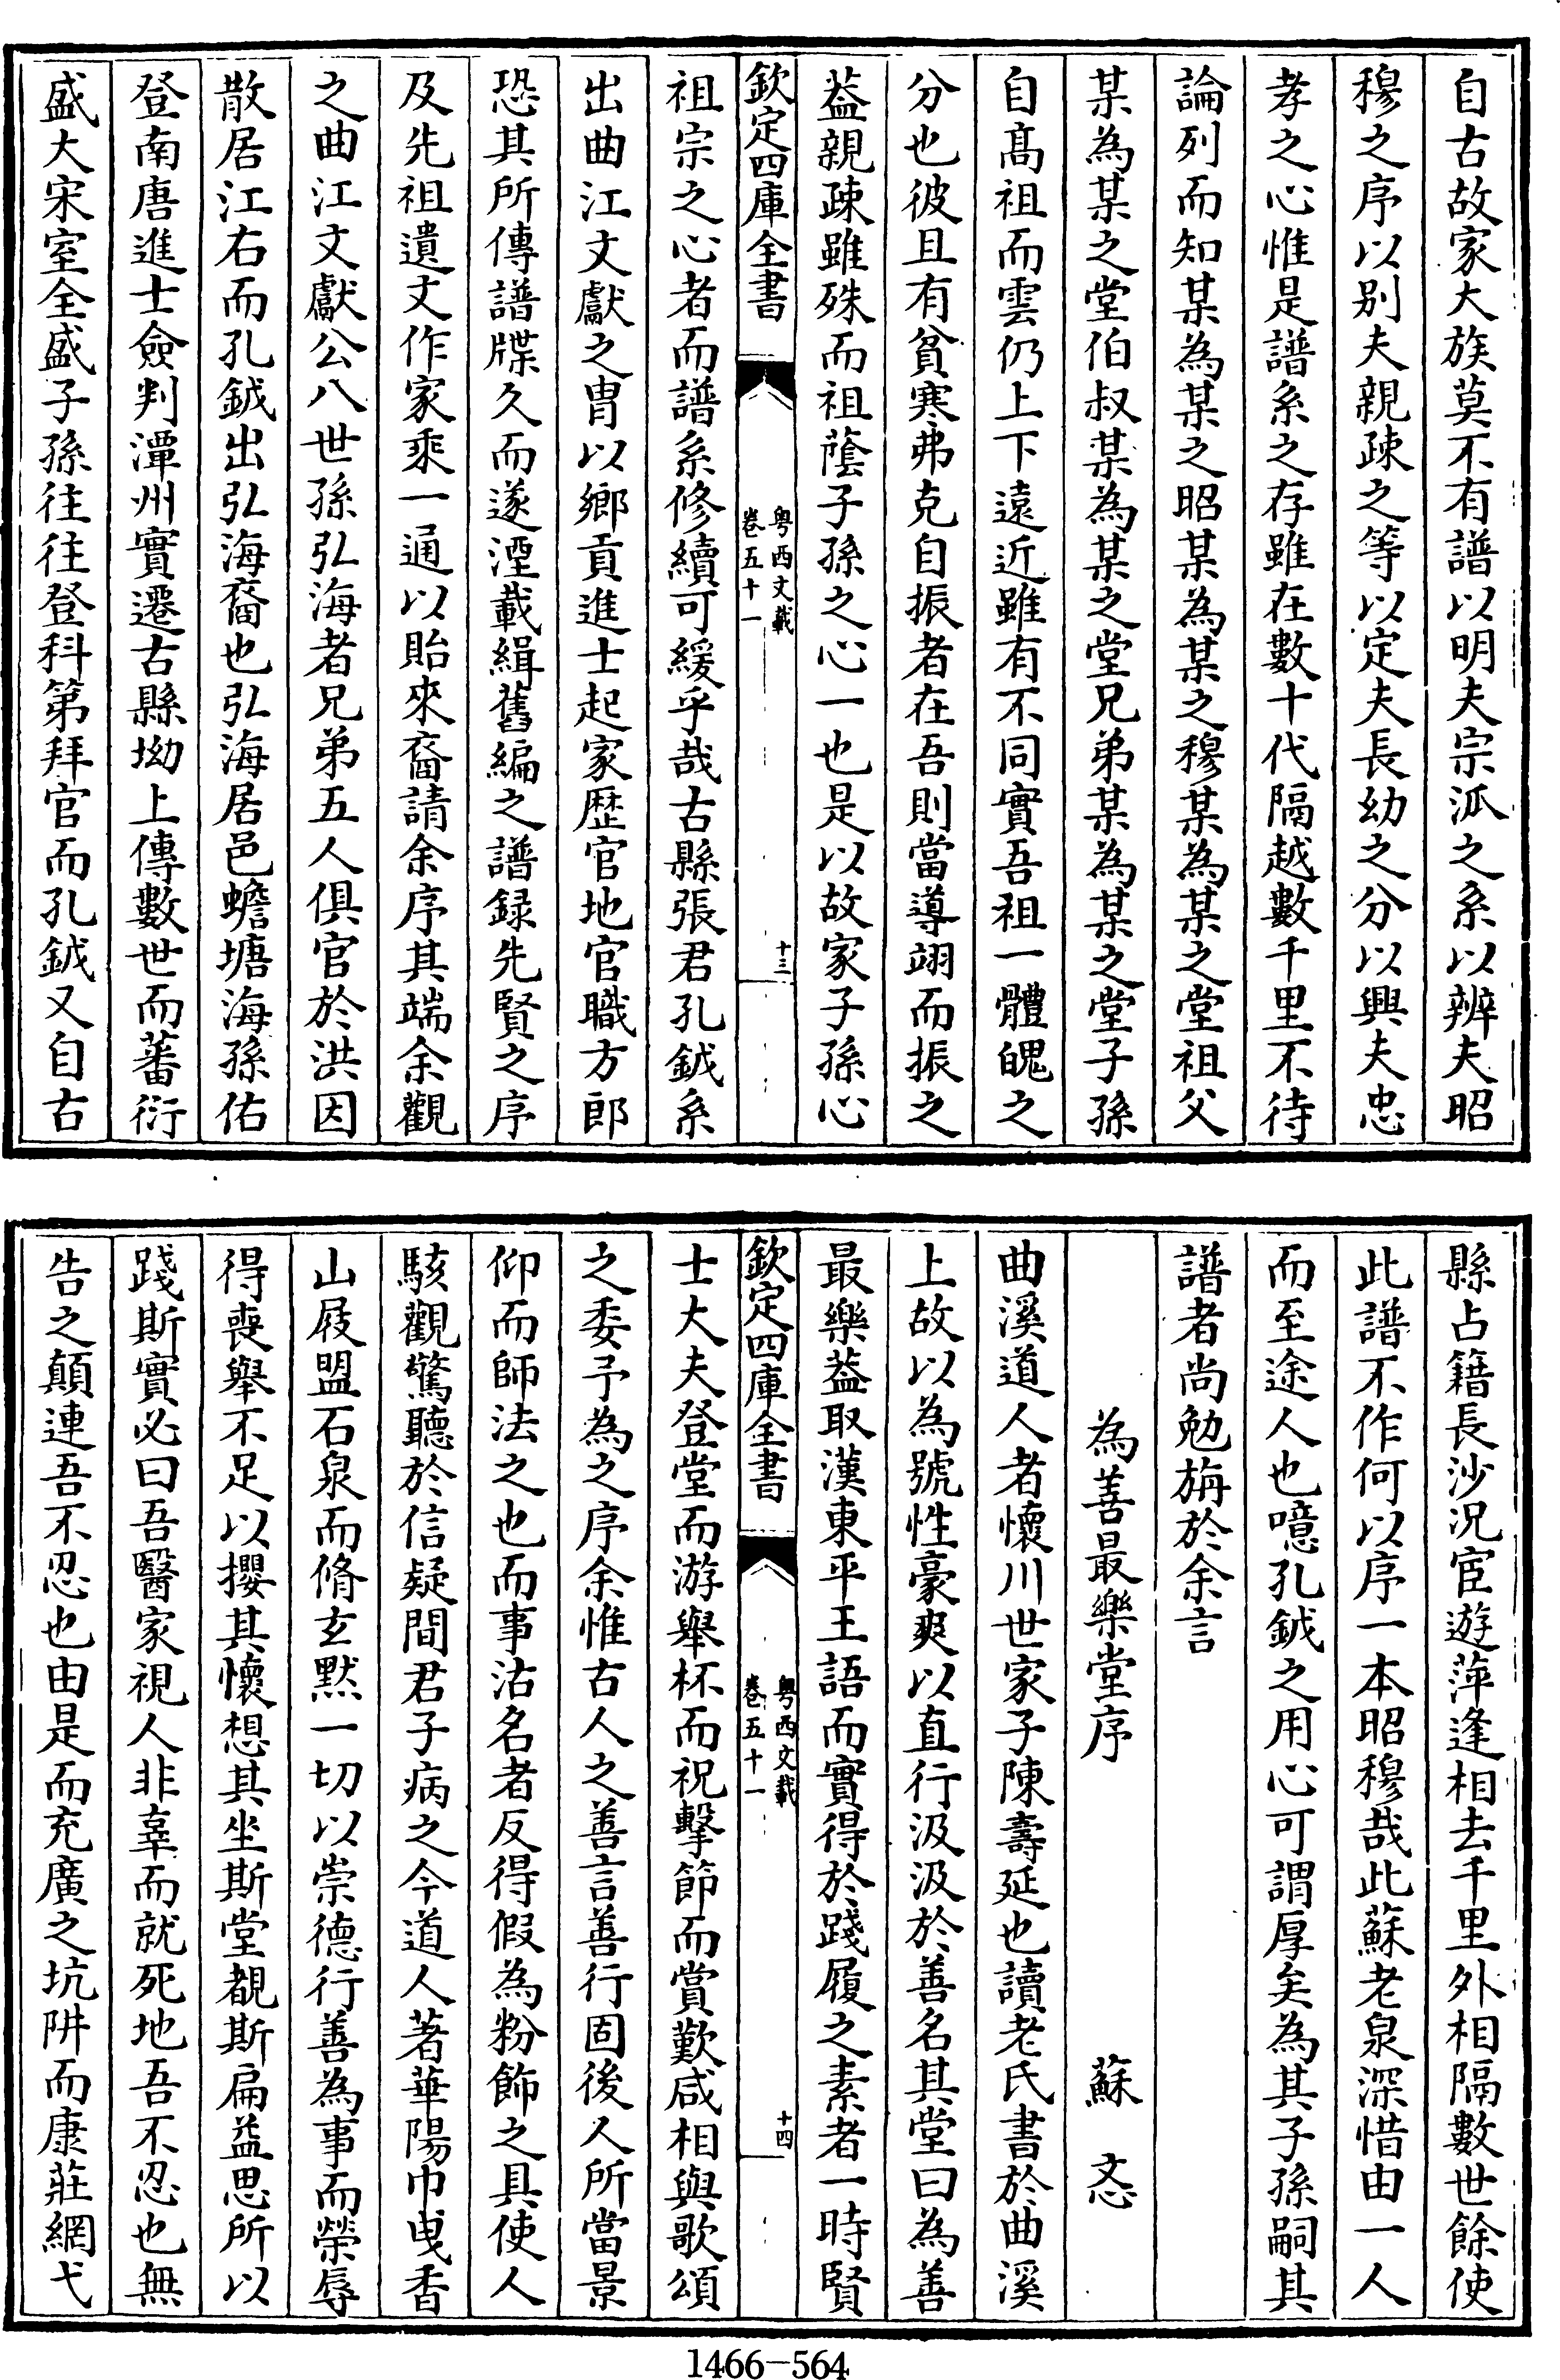 自古故家大族莫不有譜以明夫宗派之系以辨夫昭
穆之序以别夫親疎之等以定夫長幼之分以興夫忠
孝之心惟是譜系之存雖在數十代隔越數千里不待
論列而知某為某之昭某為某之穆某為某之堂祖父
某為某之堂伯叔某為某之堂兄弟某為某之堂子孫
自髙祖而雲仍上下遠近雖有不同實吾祖一體魄之
分也彼且有貧寒弗克自振者在吾則當導翊而振之
葢親疎雖殊而祖蔭子孫之心一也是以故家子孫心
欽定四庫全書
粤西文載
卷五十一
十三
祖宗之心者而譜系修續可緩乎哉古縣張君孔鉞系
出曲江文獻之胄以鄉貢進士起家歴官地官職方郎
恐其所傳譜牒久而遂湮載緝舊編之譜録先賢之序
及先祖遺文作家乘一通以貽來裔請余序其端余觀
之曲江文獻公八世孫弘海者兄弟五人俱官於洪因
散居江右而孔鉞出弘海裔也弘海居邑蟾塘海孫佑
登南唐進士僉判潭州實遷古縣坳上傳數世而蕃衍
盛大宋室全盛子孫往往登科第拜官而孔鉞又自古
縣占籍長沙况宦遊萍逢相去千里外相隔數世餘使
此譜不作何以序一本昭穆哉此蘇老泉深惜由一人
而至途人也噫孔鉞之用心可謂厚矣為其子孫嗣其
譜者尚勉旃於余言
為善最樂堂序 蘇 忞
曲溪道人者懷川世家子陳壽延也讀老氏書於曲溪
上故以為號性豪爽以直行汲汲於善名其堂曰為善
最樂葢取漢東平王語而實得於踐履之素者一時賢
欽定四庫全書
粤西文載
卷五十一
十四
士大夫登堂而游舉杯而祝擊節而賞歎咸相與歌頌
之委予為之序余惟古人之善言善行固後人所當景
仰而師法之也而事沽名者反得假為粉飾之具使人
駭觀驚聽於信疑間君子病之今道人著華陽巾曵香
山屐盟石泉而脩玄默一切以崇德行善為事而榮辱
得喪舉不足以攖其懷想其坐斯堂覩斯扁益思所以
踐斯實必曰吾醫家視人非辜而就死地吾不忍也無
告之顛連吾不忍也由是而充廣之坑阱而康莊網弋
1466-564